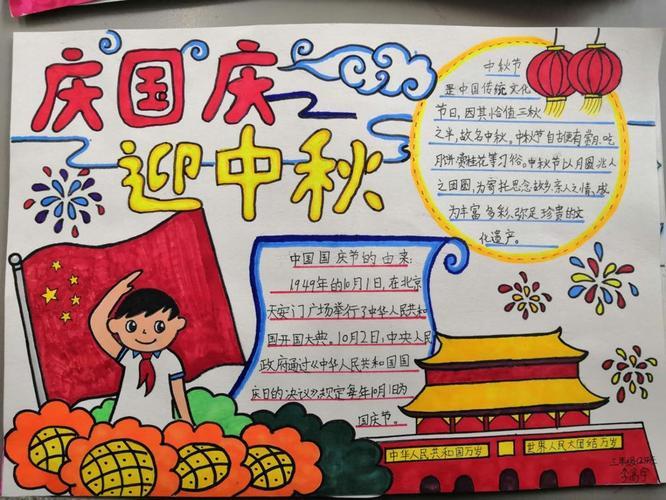 庆国庆
迎中秋
中秋节
是中国传统文化
节日，因其恰值三秋
之半，故名中秋。中秋节自古便有赏月、吃
月饼、赏桂花等习俗。中秋节以月圆兆人
之团圆，为寄托思念故乡，亲人之情，成
为丰富多彩、弥足珍贵的文
化遗产。
中国国庆节的由来:
1949年的10月1日,在北京
天安门广场举行了中华人民共和
国开国大典。10月2日,中央人民
政府通过《中华人民共和国国
庆日的决议》规定每年10月1日为
国庆节。
中华人民共和国万岁
世界人民大团结万岁